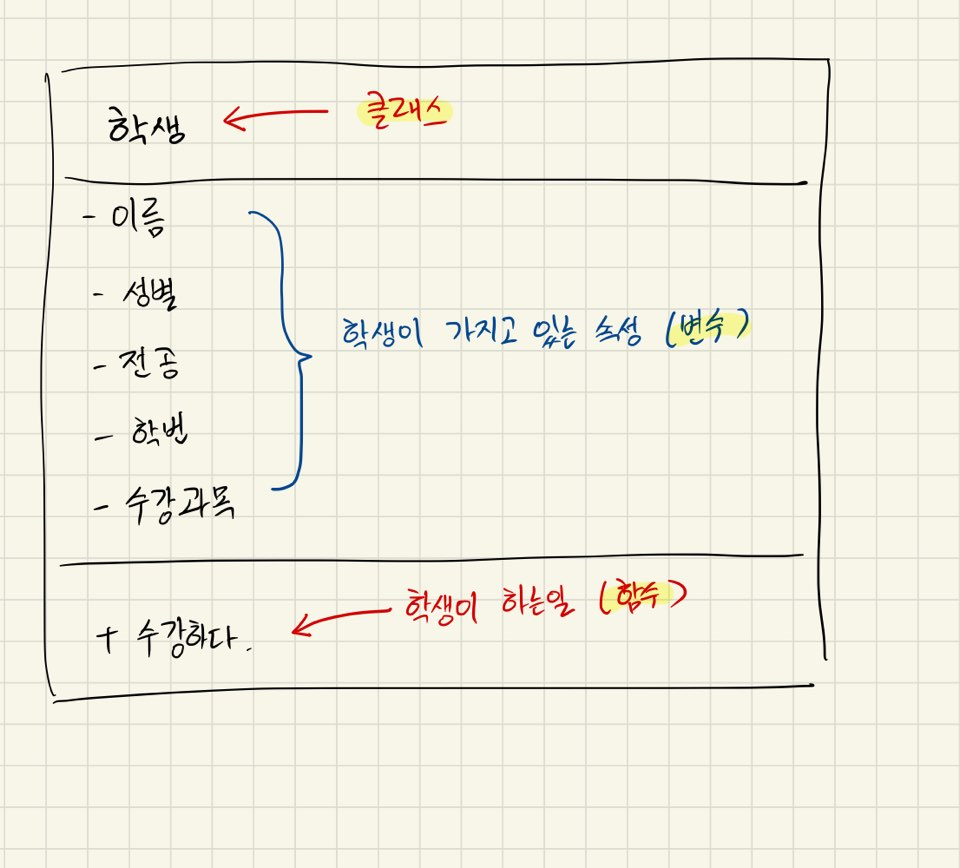 학생 ← 클래스
- 이름
- 성별
학생이 가지고 있는 속성 (변수)
- 전공
- 학번
- 수강과목
학생이 하는일 (함수)
+ 수강하다.